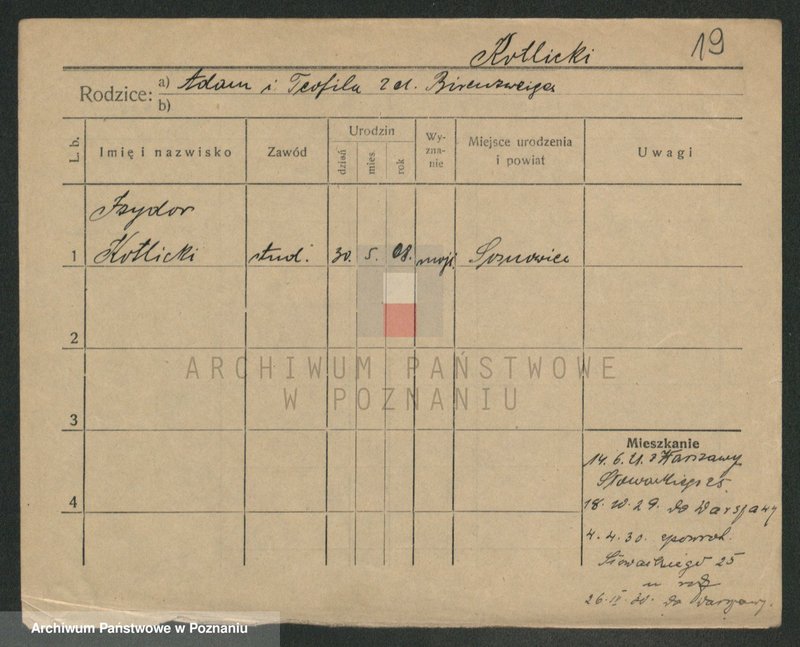 Kotlicki 19
Rodzice: a) Adam i Teofila z d. Birenzweiga
b)
L. b. Imię i nazwisko Zawód Urodzin dzień mies. rok Wyznanie Miejsce urodzenia i powiat Uwagi
Izydor
1 Kotlicki stud. 30. 5. 08. mojż. Sosnowice
2
3
4
ARCHIWUM PAŃSTWOWE
W POZNANIU
Mieszkanie
14. 6. z Warszawy
Słowackiego 25
18. 10. 29. do Warszawy
4. 4. 30.
Słowackiego 25
u
26. 30. do Warszawy.
Archiwum Państwowe w Poznaniu